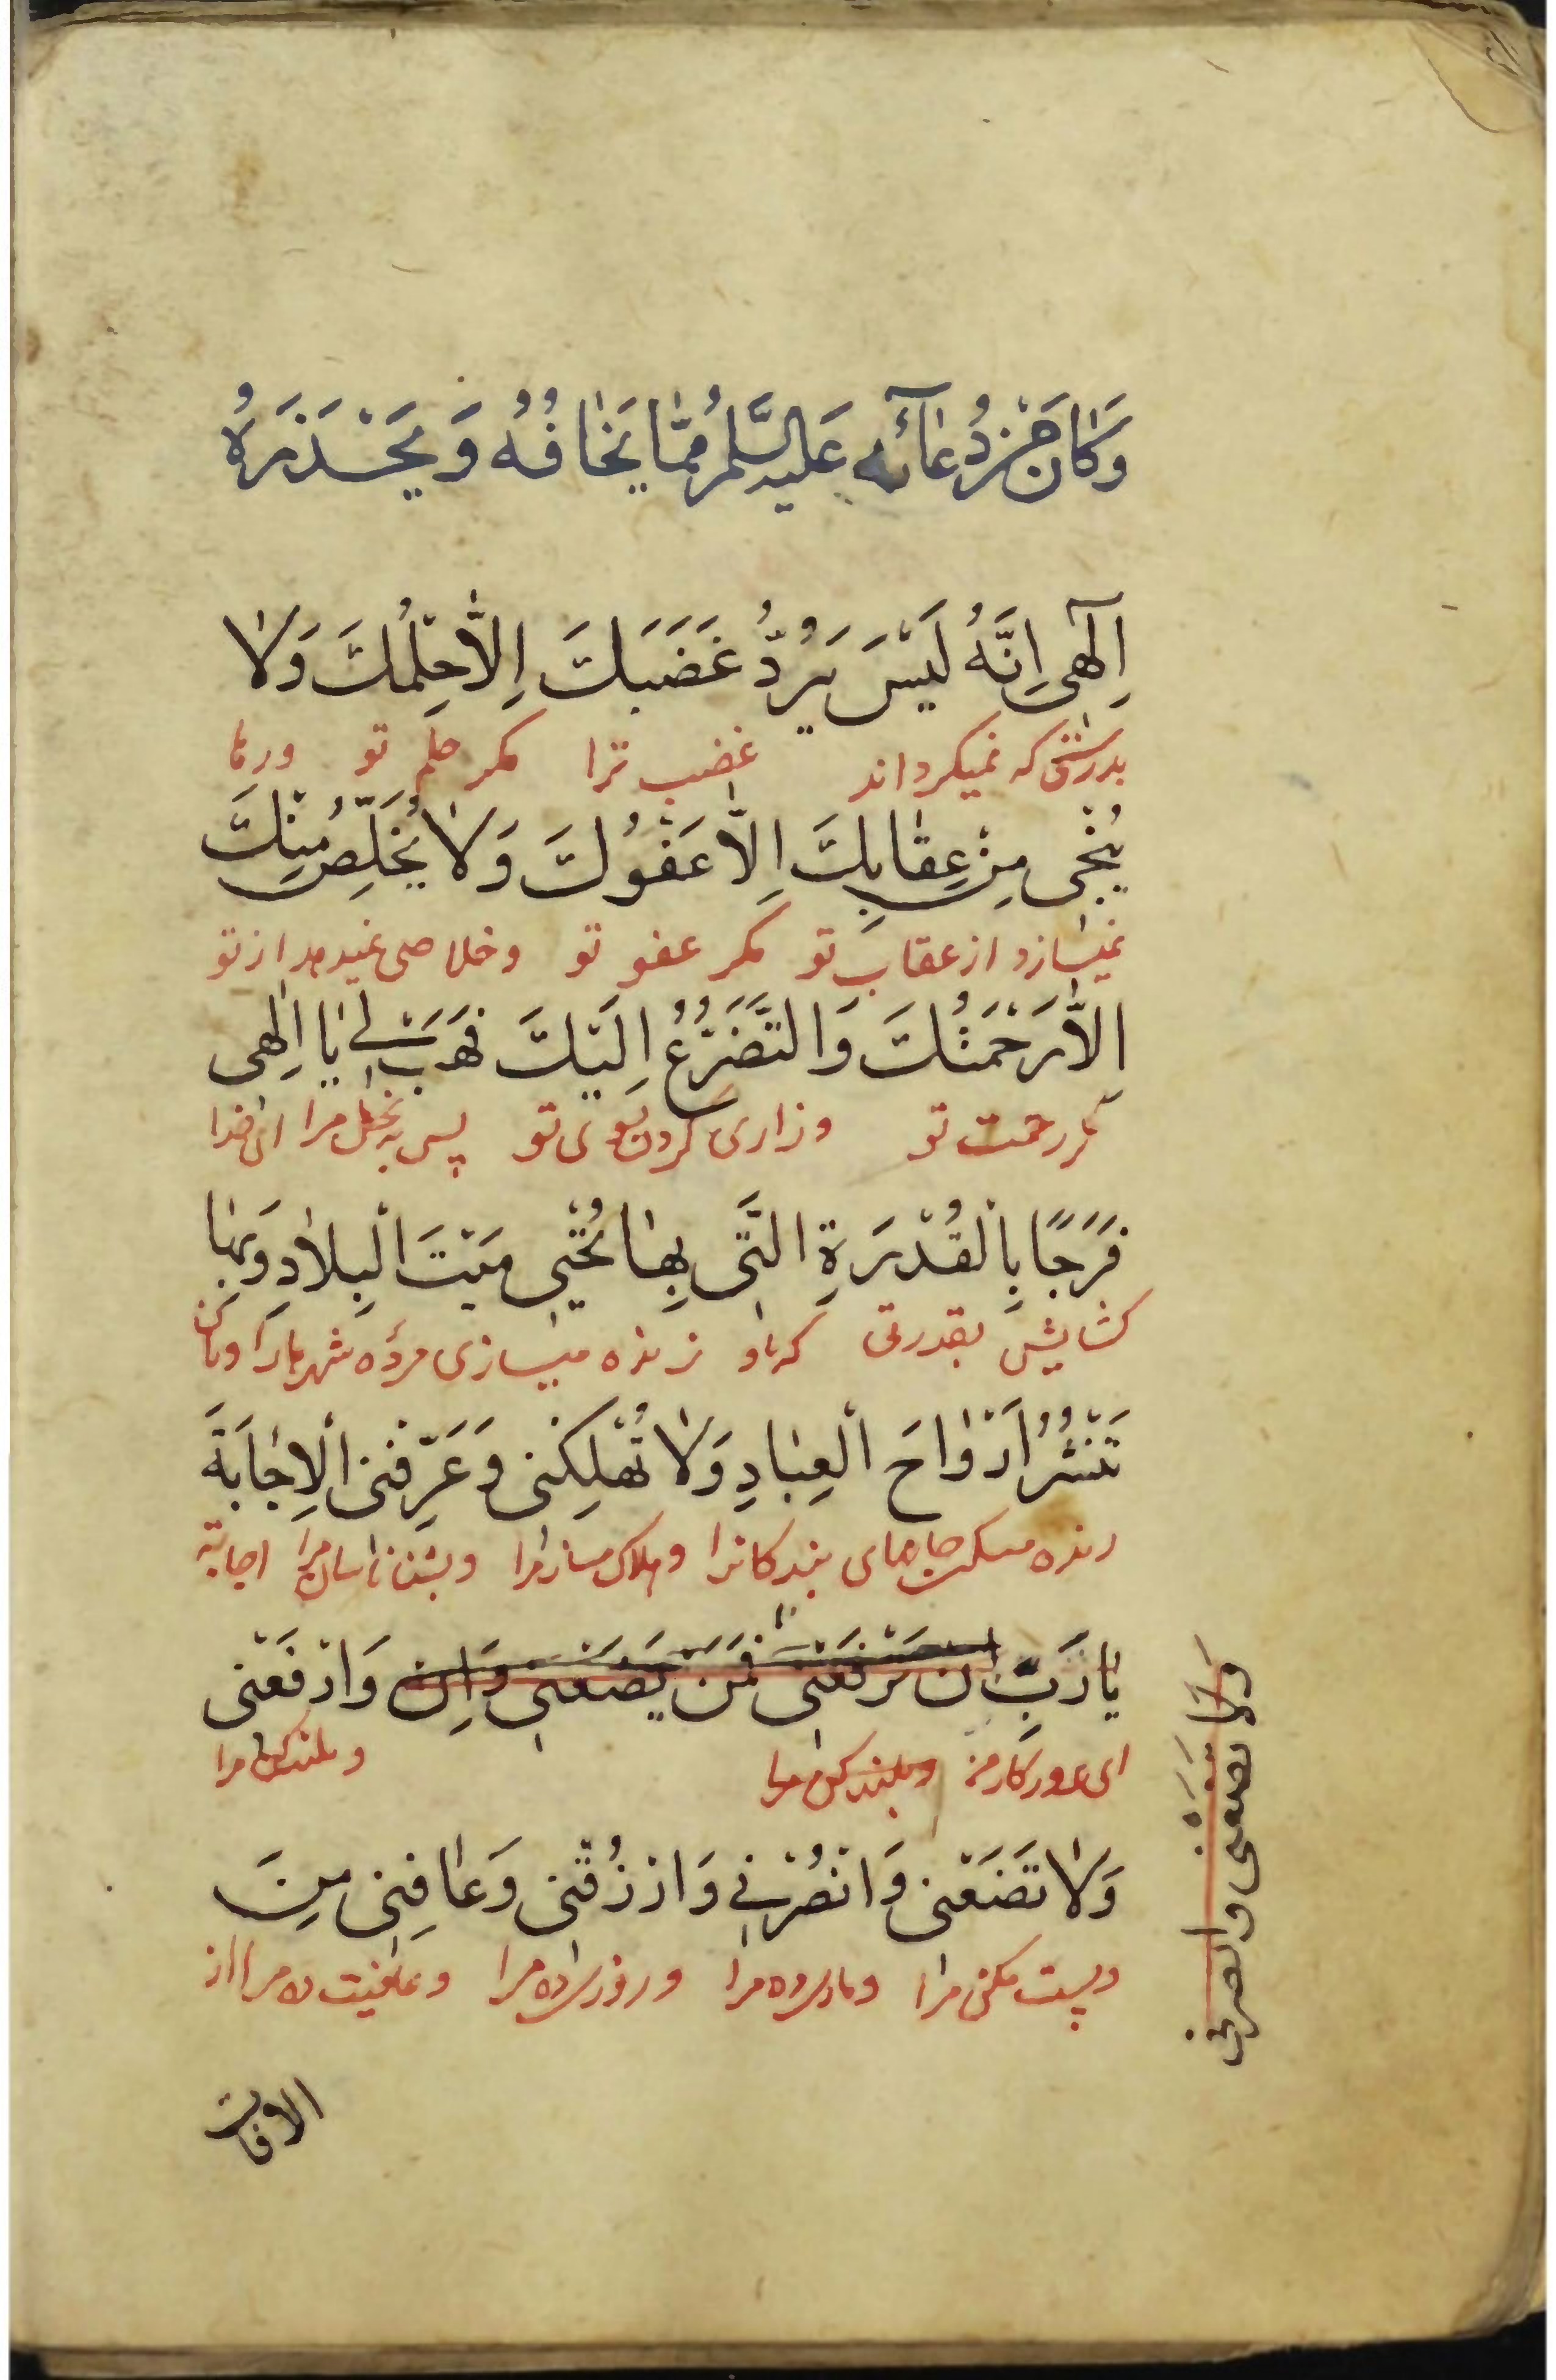 وَكَانَ مِنْ دُعَآئِهِ عَلَيْهِ السَّلَامُ مِمَّا يَخَافُهُ وَيَحْذَرُهُ
اِلٰهِى اِنَّهُ لَيْسَ يَرُدُّ غَضَبَكَ اِلَّا حِلْمُكَ وَلَا
بدرستی که نمیکرداند غضب ترا مکر حلم تو ورها
يُنْجِى مِنْ عِقَابِكَ اِلَّا عَفْوُكَ وَلَا يُخَلِّصُ مِنْكَ
نمیسازد از عقاب تو مکر عفو تو وخلاصی نمیدهد از تو
اِلَّا رَحْمَتُكَ وَالتَّضَرُّعُ اِلَيْكَ فَهَبْ لِى يَا اِلٰهِى
مکر رحمت تو وزاری کردن بسوی تو پس ببخش مرا ای خدا
فَرَجًا بِالْقُدْرَةِ الَّتِى بِهَا تُحْيِى مَيْتَ الْبِلَادِ وَبِهَا
کشایش بقدرتی که باو زنده میسازی مرده شهرها را وبآن
تَنْشُرُ اَرْوَاحَ الْعِبَادِ وَلَا تُهْلِكْنِى وَعَرِّفْنِى الْاِجَابَةَ
زنده میکنی جانهای بندکانرا وهلاک مساز مرا وبشناسان مرا اجابة
يَا رَبِّ ان تَرْفَعْنِى فَمَنْ يَضَعُنِى وَاِن وَارْفَعْنِى
ای پروردکار من وبلند کن مرا وبلند کن مرا
وَلَا تَضَعْنِى وَانْصُرْنِى وَارْزُقْنِى وَعَافِنِى مِنَ
وپست مکن مرا ویاری ده مرا وروزی ده مرا وعافیت ده مرا از
ولا تضعنى وانصرنى
الافات